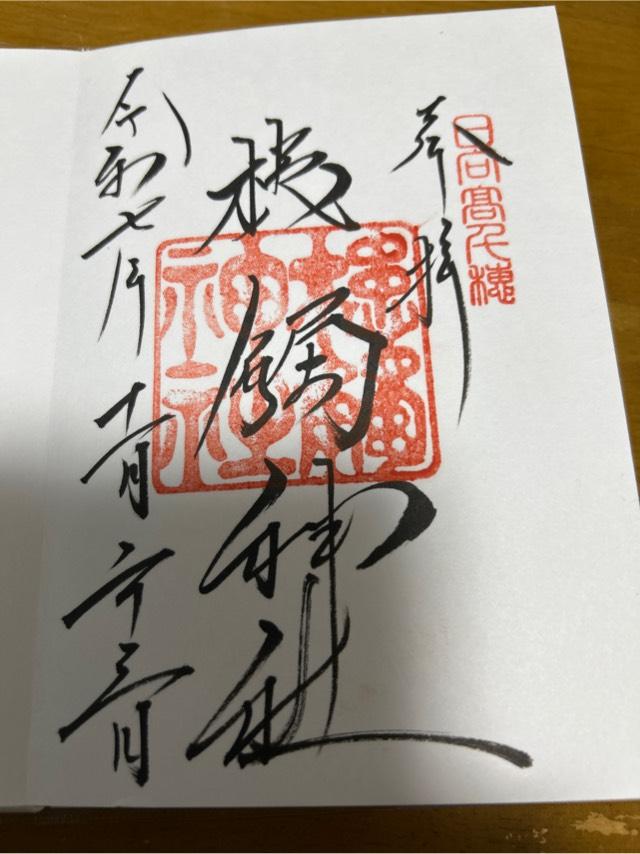 日向髙千穂
奉拝
槵觸神社
槵觸神社
令和七年十一月二十三日